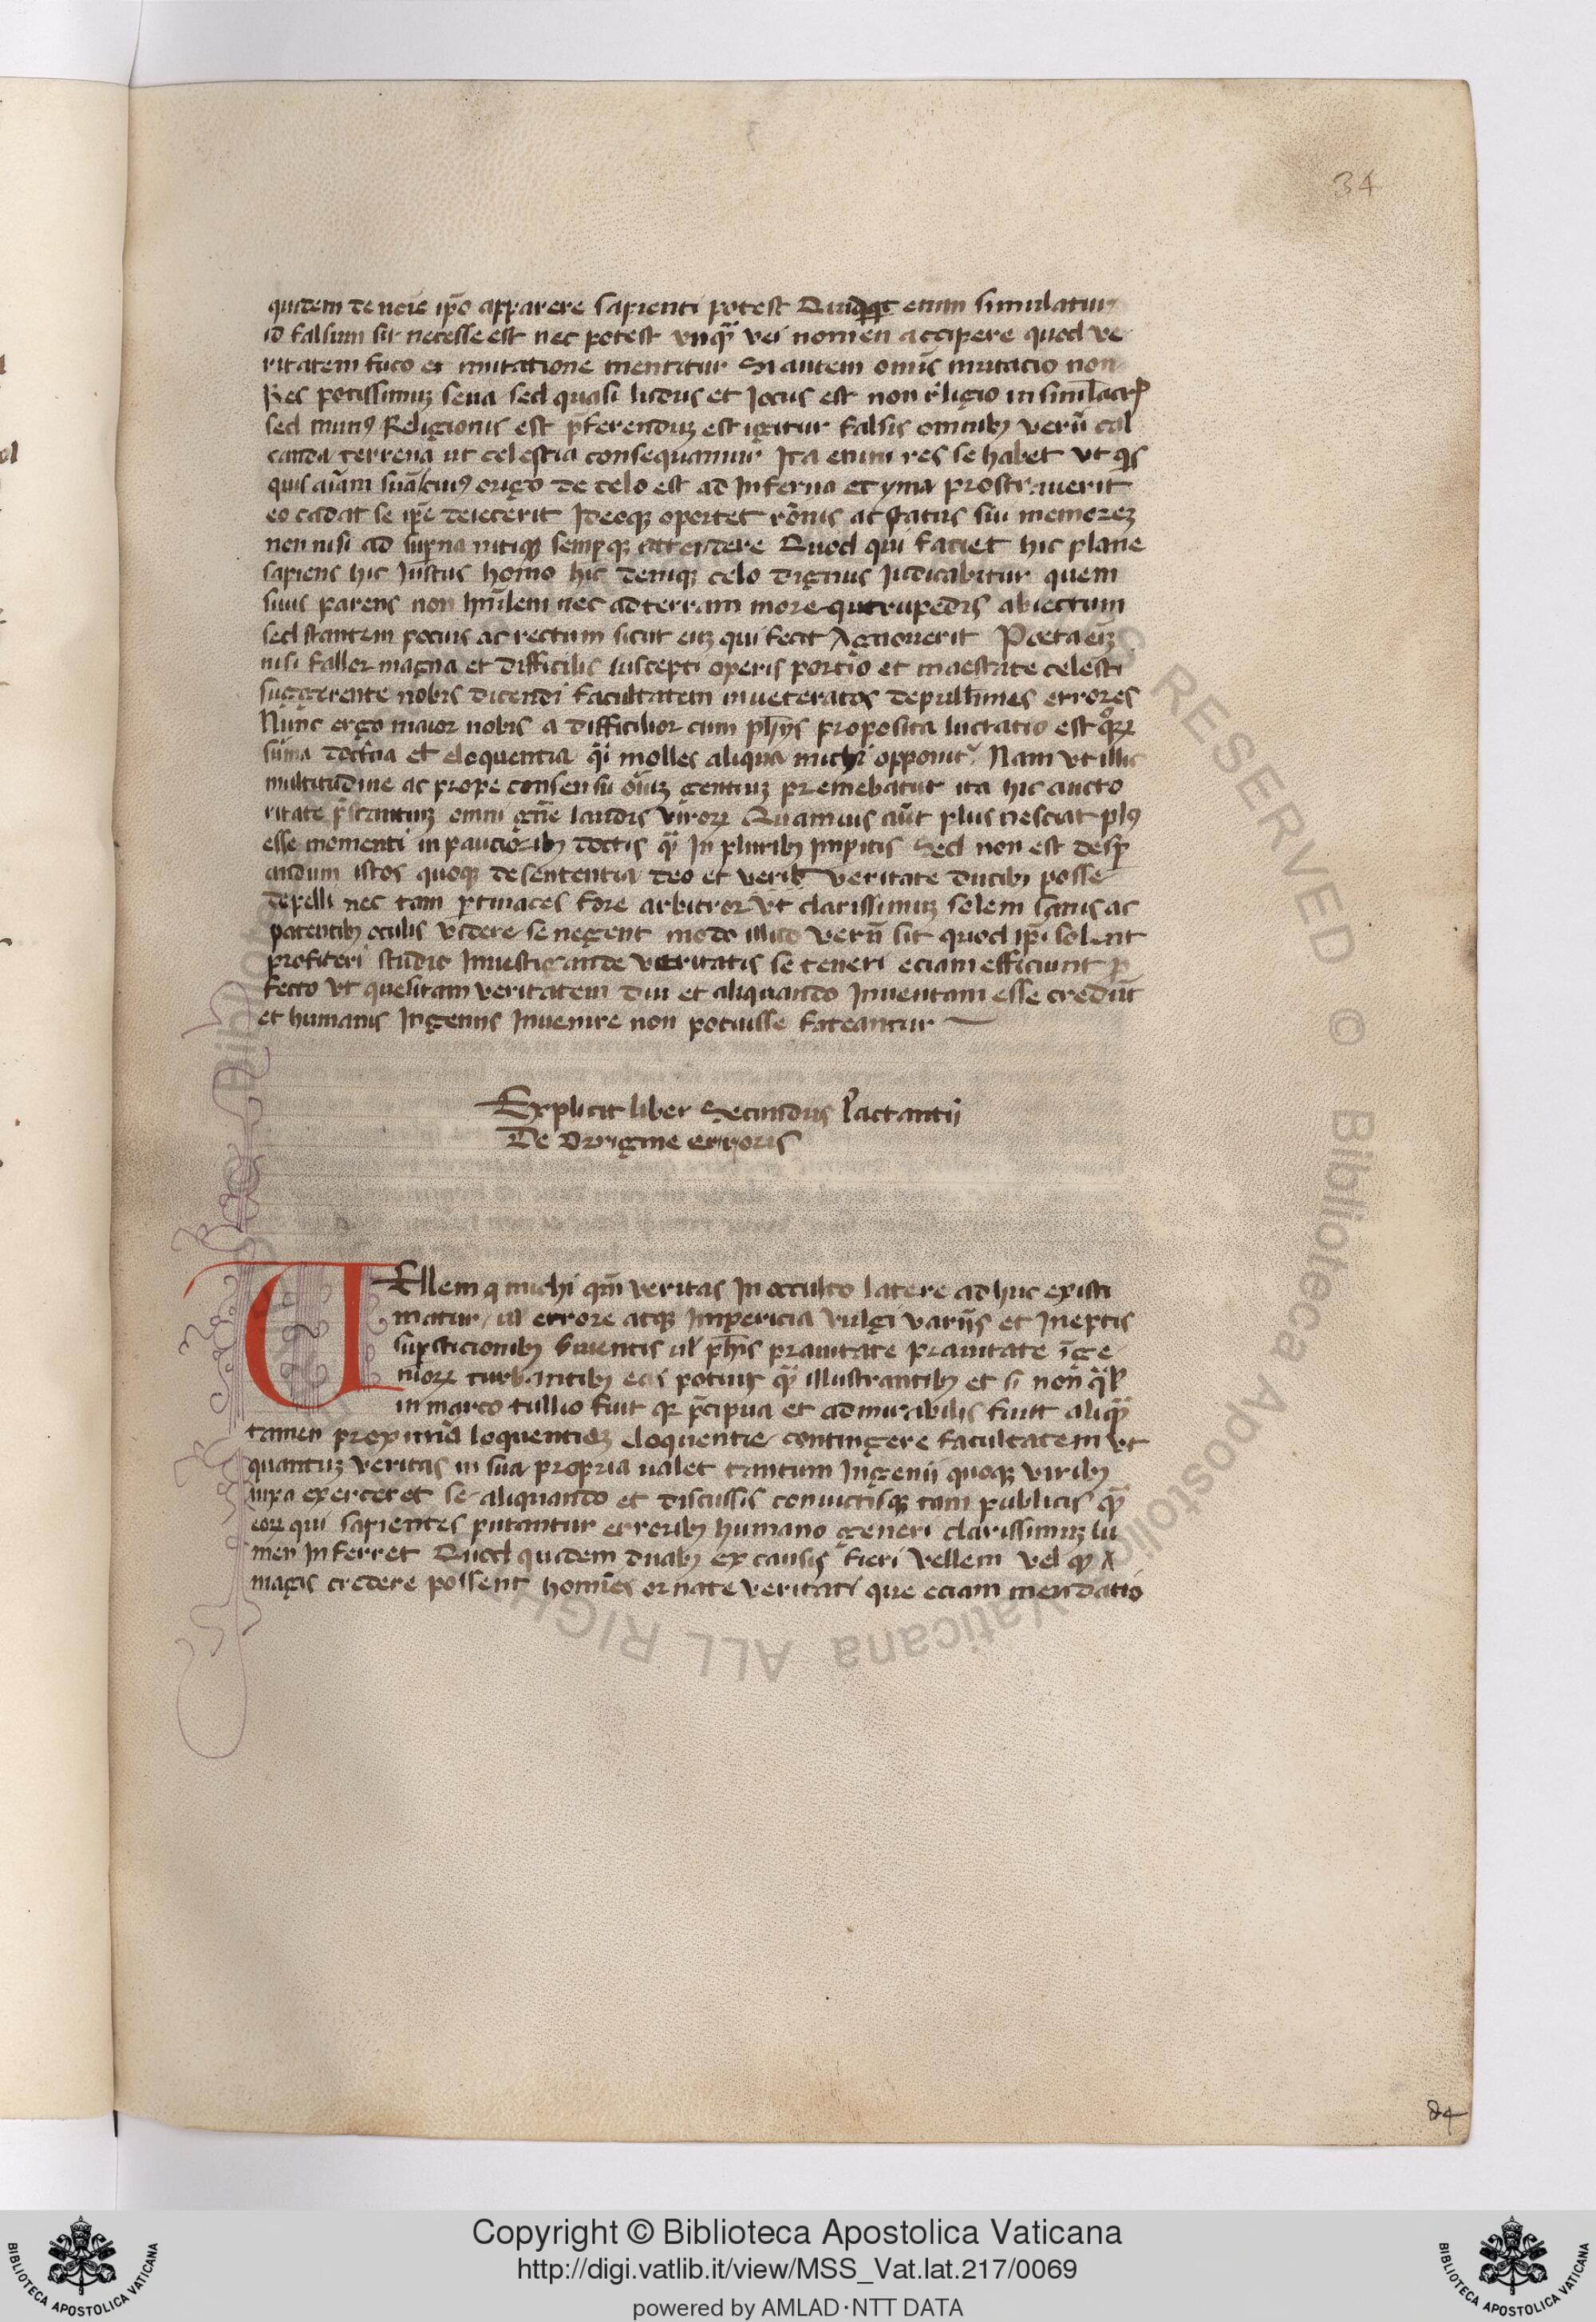 34
quidem de noīe ip̄o apparere sapienti potest Quidquit enim simulatur
id falsum sit necesse est nec potest vnqͣ vei nomen accipere quod ve
ritatem fuco et imitatione mentitur Si autem omīs imitacio non
Res potissimuꝫ seria sed quasi ludus et Jocus est non religio in simlacrꝭ
sed mimꝰ Religionis est p̄ferendūꝫ est igitur falsis omnibꝫ verū cal
canda terrena ut celestia consequamur Ita enim res se habet vt qͥs
quis aīam suā cuiꝰ origo de celo est ad Inferna et yma prostrauerit
eo cadat se ip̄e deiecerit Ideoqꝫ oportet rōnis ac status sui memoreꝫ
non nisi ad suꝑna nitiqꝫ sempqꝫ attendere Quod qui faciet hic plane
sapiens hic Iustus homo hic deniqꝫ celo dignus Iudicabitur quem
suus parens non hūilem nec ad terram more qutrupedis abiectum
sed stantem pocius ac rectum sicut euꝫ qui fecit Agnouerit Pœta eiꝫ
nisi fallor magna et difficilis suscepti operis portio et maestate celesti
suggerente nobis dicendi facultatem inueteratos depulimus errores
Nunc ergo maior nobis a difficilior cum ph̄ys proposita luctatio est quoꝝ
sūma doctrīa et eloquentia qͣi molles aliqua michi opponit Nam vt illic
multitudine ac prope consensu oīuꝫ gentiuꝫ premebatur ita hic aucto
ritate p̄stantiuꝫ omni gn̄e laudis viroꝝ Quamuis aūt plus nesciat plꝰ
esse momenti in paucioribꝫ doctis qͣ In pluribꝫ Imꝑitis Sed non est despꝑ
andum istos quoqꝫ de sententia deo et veritate ducibꝫ posse
depelli nec tam ꝑtinaces fore arbitror vt clarissimuꝫ solem sanis ac
patentibꝫ oculis videre se negent modo illud verū sit quod ip̄i solent
profiteri studio Inuestigande veritatis se teneri eciam efficiunt ꝓ
fecto vt quesitam veritatem diu et aliquando Inuentam esse credūt
et humanis Ingeniis Inuenire non potuisse fateantur
Explicit liber Secundus Lactantij
De Origine erroris
UEllem q michi qm̄ veritas In occulto latere ad huc existi
matur ul errore atqꝫ Imꝑericia vulgi varijs et Ineptis
suꝑsticionibꝫ seruientis ul ph̄is prauitate prauitate īge
nioꝝ turbantibꝫ eā potius qͣ illustrantibꝫ et si non qͣl
in marco tullio fuit qꝛ p̄cipua et admirabilis fuit aliqͣ
tamen proximā loquentioꝫ eloquentie contingere facultatem vt
quantuꝫ veritas in sua propria ualet tantum Ingenij quoqꝫ viribꝫ
nixa exerceret se aliquando et discussis conuictisqꝫ tam publicis qͣ
eoꝝ qui sapientes putantur erroribꝫ humano generi clarissimuꝫ lu
men Inferret Quod quidem duabꝫ ex causis fieri vellem vel qꝫ
magis credere possent homīes ornate veritati que eciam mendatio
d4
ALL RIGHTS RESERVED © Biblioteca Apostolica Vaticana
Copyright © Biblioteca Apostolica Vaticana
http://digi.vatlib.it/view/MSS_Vat.lat.217/0069
powered by AMLAD·NTT DATA
BIBLIOTECA APOSTOLICA VATICANA
BIBLIOTECA APOSTOLICA VATICANA